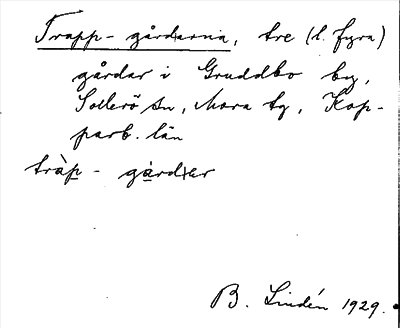 Trapp-gårdarna, tre (l. fyra)
gårdar i Gruddbo by,
Sollerö sn, Mora tg, Kop-
parb. län
tràp - gård
B. Lindén 1929.